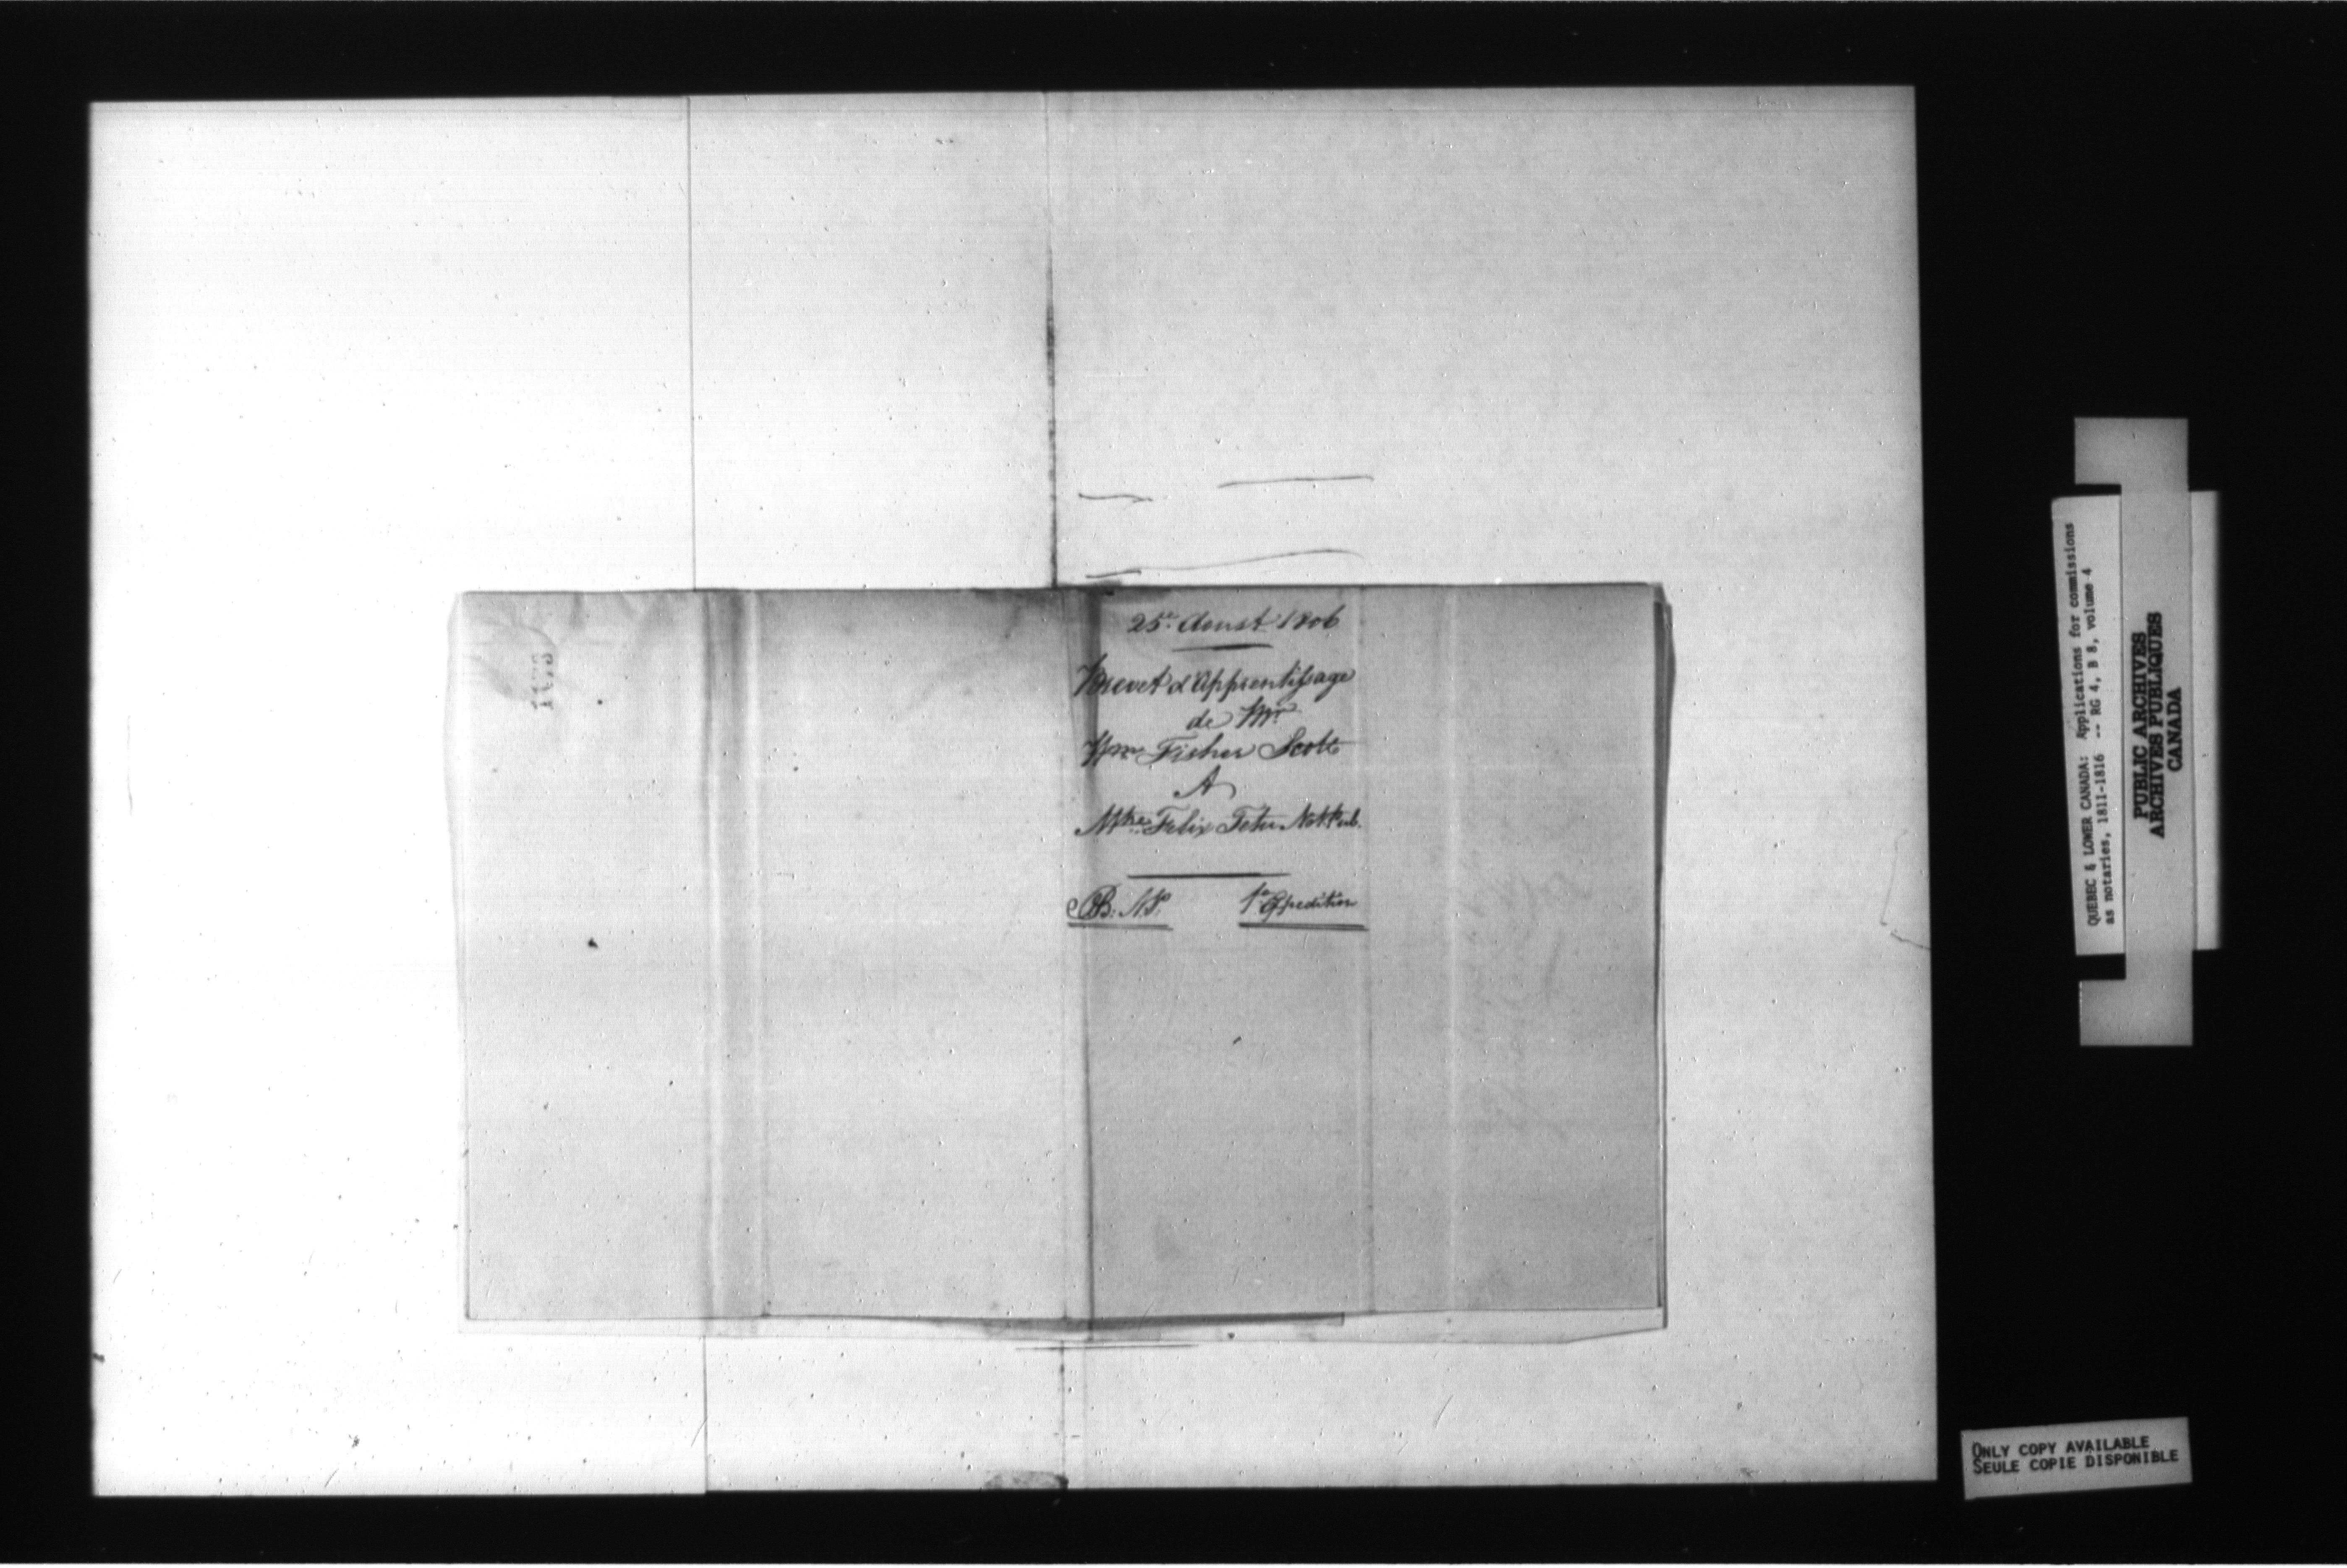 25e. Aoust 1806
Brevet d'Apprentissage
de Mr.
Wm. Fisher Scott
A
Mtre. Felix Tetu Not: Pub.
B: N.P.
1e. Expedition
QUEBEC & LOWER CANADA: Applications for commissions
as notaries, 1811-1816 -- RG 4, B 8, volume 4
PUBLIC ARCHIVES
ARCHIVES PUBLIQUES
CANADA
ONLY COPY AVAILABLE
SEULE COPIE DISPONIBLE